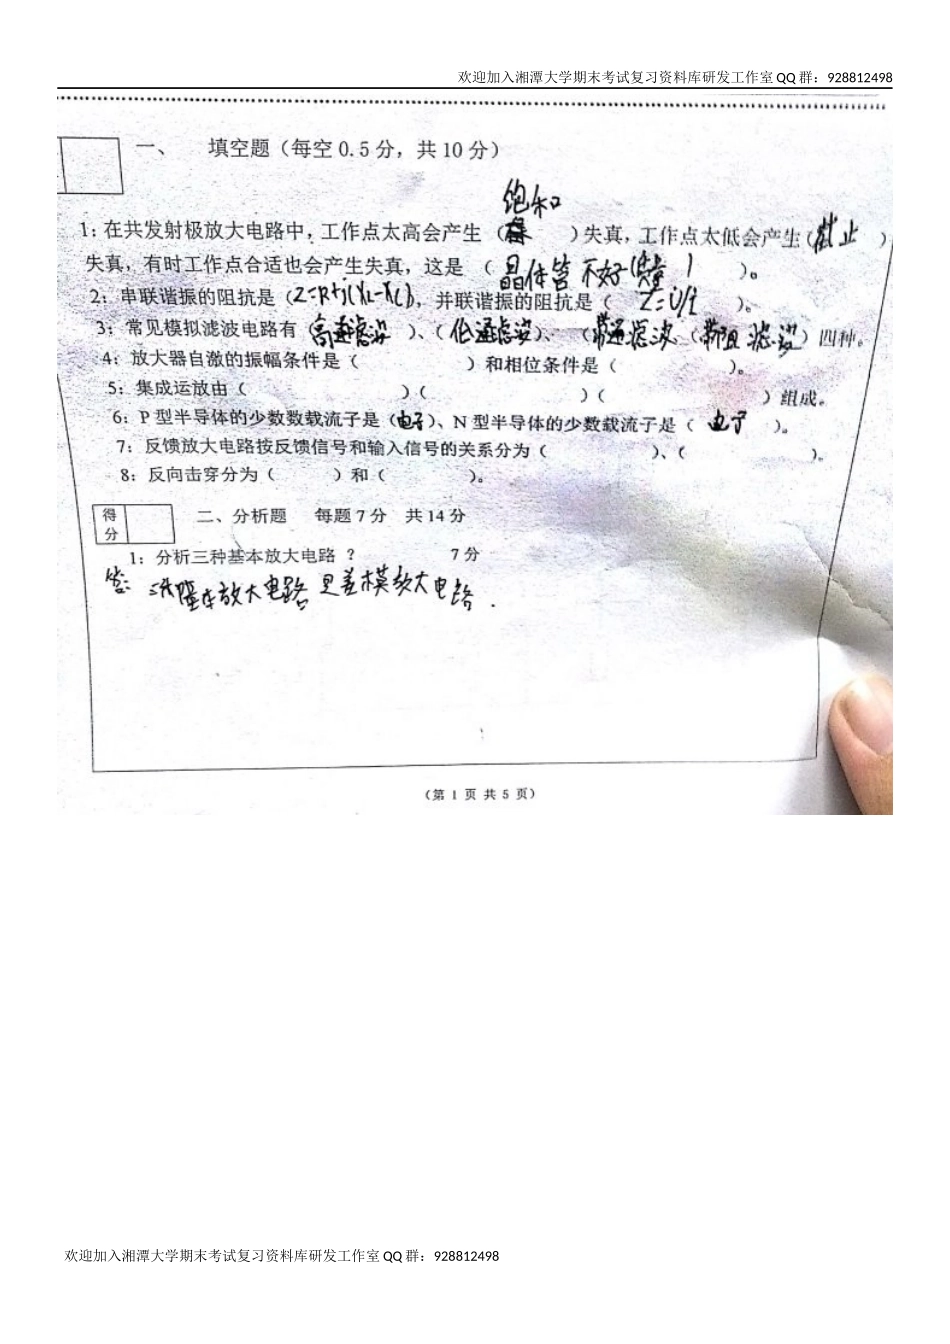 欢迎加入湘潭大学期末考试复习资料库研发工作室 QQ 群：928812498
一、 填空题（每空 0.5 分，共 10 分）
饱和
1：在共发射极放大电路中，工作点太高会产生（ ）失真，工作点太低会产生（截止 ）
失真，有时工作点合适也会产生失真，这是 （ 晶体管 不好 ）。
2：串联谐振的阻抗是（Z=R+j(XL-XC)），并联谐振的阻抗是（ Z=U/I ）。
3：常见模拟滤波电路有（高通滤波 ）、（低通滤波）、（带通滤波、（带阻滤波）四种。
4：放大器自激的振幅条件是（ ）和相位条件是（ ）。
5：集成运放由（ ）（ ）（ ）组成。
6：P 型半导体的少数数载流子是（电子）、N 型半导体的少数载流子是（ 电子 ）。
7：反馈放大电路按反馈信号和输入信号的关系分为（ ）、（ ）。
8：反向击穿分为（ ）和（ ）。
得分 二、分析题 每题 7 分 共 14 分
1：分析三种基本放大电路 ？ 7 分
答： 放大电路 是差模放大电路.
（第 1 页 共 5 页）
欢迎加入湘潭大学期末考试复习资料库研发工作室 QQ 群：928812498